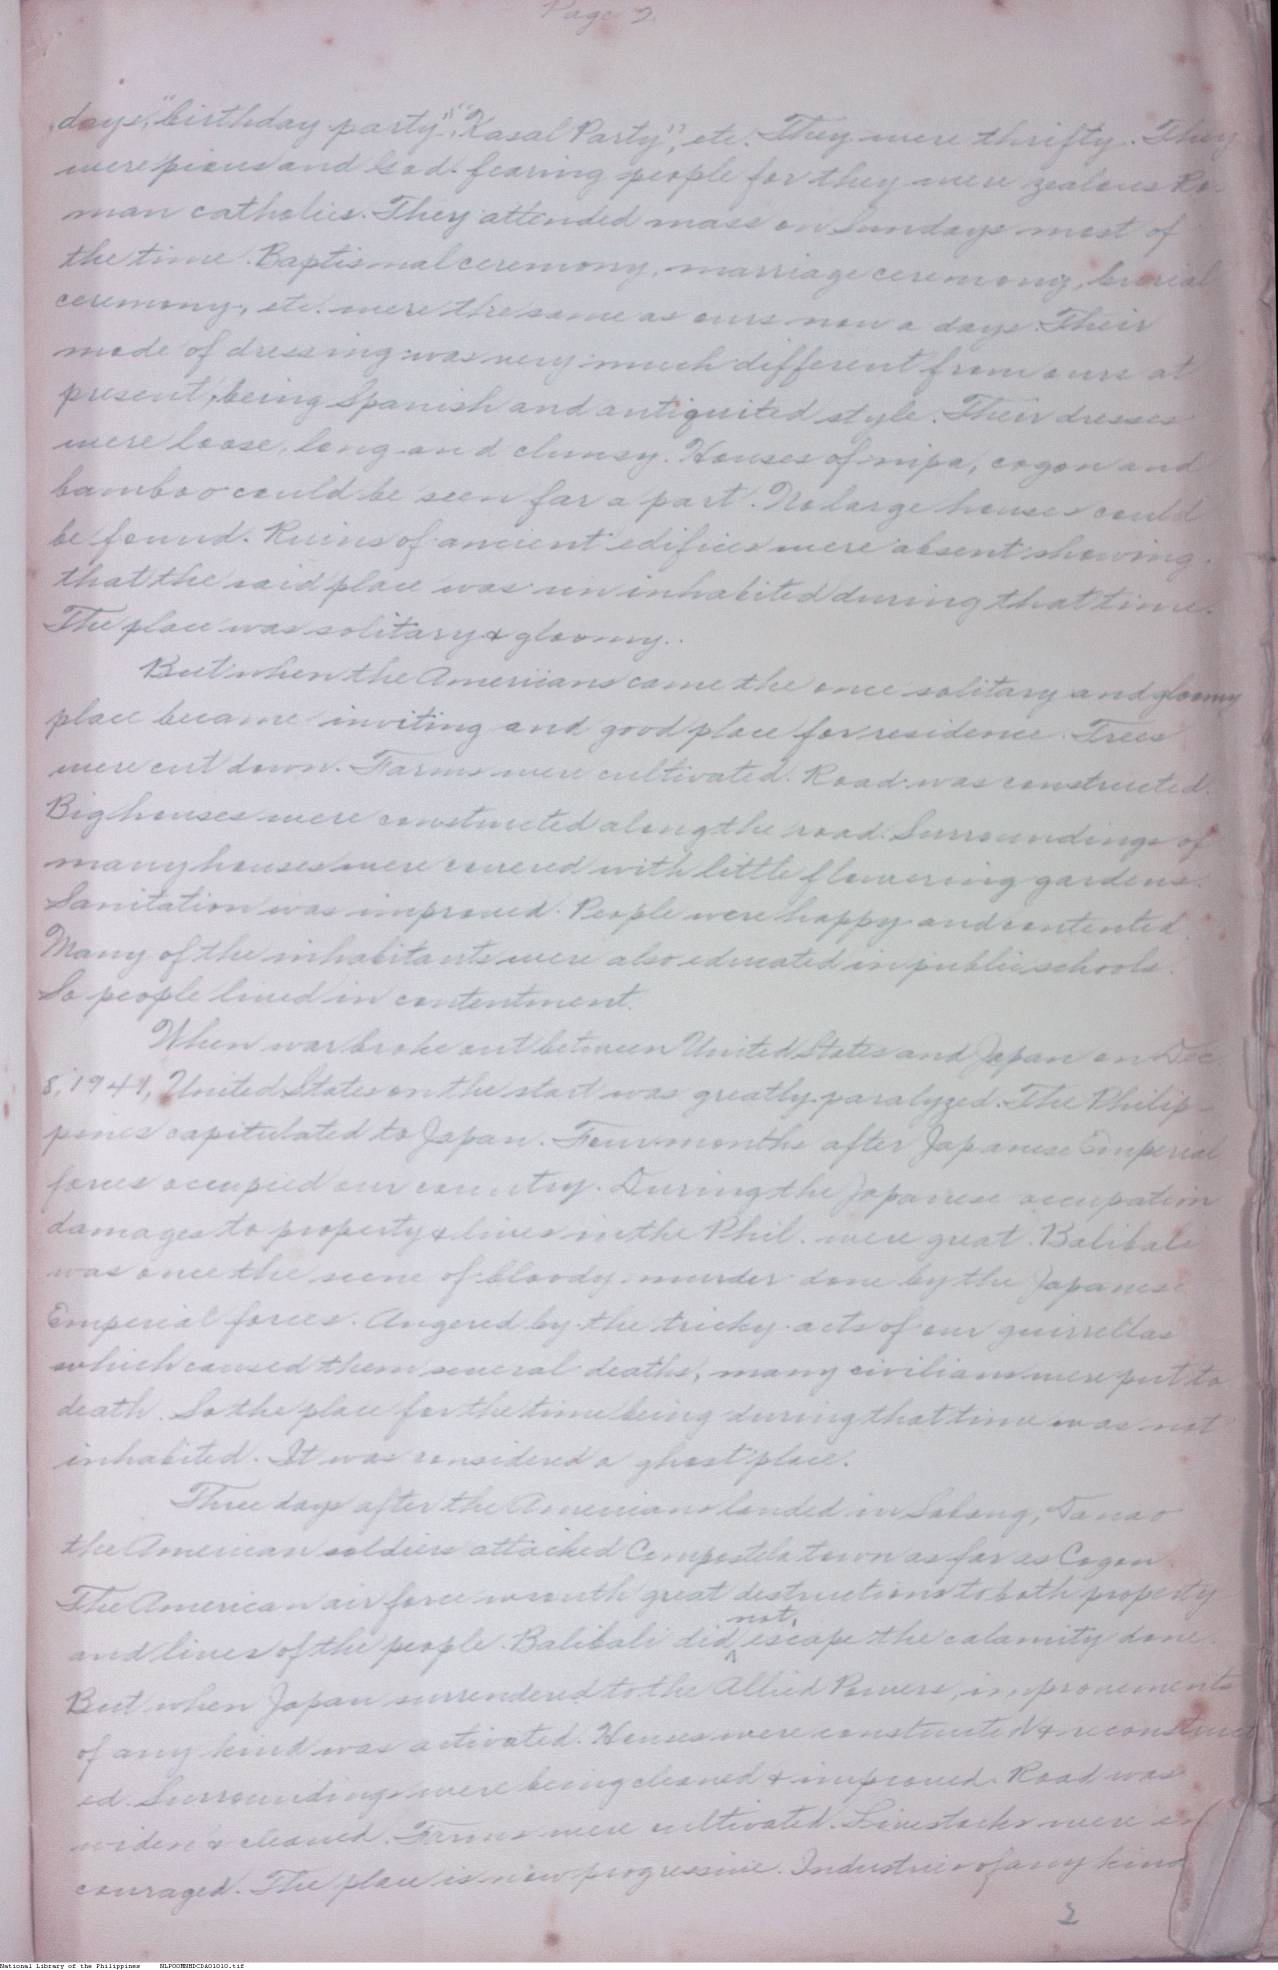 Page 2.
days," "birthday party", "Kasal Party", etc. They were thrifty. They
were pious and God-fearing people for they were zealous Ro-
man catholics. They attended mass on Sundays most of
the time. Baptismal ceremony, marriage ceremony, burial
ceremony, etc. were the same as ours now a days. Their
mode of dressing was very much different from ours at
present, being Spanish and antiquited style. Their dresses
were loose, long and clumsy. Houses of nipa, cogon and
bamboo could be seen far a part. No large houses could
be found. Ruins of ancient edifices were absent showing
that the said place was uninhabited during that time.
The place was solitary & gloomy.
But when the Americans came the once solitary and gloomy
place became inviting and good place for residence. Trees
were cut down. Farms were cultivated. Road was constructed.
Big houses were constructed along the road. Surroundings of
many houses were covered with little flowering gardens.
Sanitation was improved. People were happy and contented.
Many of the inhabitants were also educated in public schools.
So people lived in contentment.
When war broke out between United States and Japan on Dec.
8, 1941, United States on the start was greatly paralyzed. The Philip-
pines capitulated to Japan. Four months after Japanese Emperial
forces occupied our country. During the Japanese occupation
damages to property & lives in the Phil. were great. Balibali
was once the scene of bloody murder done by the Japanese
Emperial forces. Angered by the tricky acts of our guirrellas
which caused them several deaths, many civilians were put to
death. So the place for the time being during that time was not
inhabited. It was considered a ghost place.
Three days after the Americans landed in Sabang, Danao
the American soldiers attacked Compostela town as far as Cogon.
The American air force wrouth great destructions to both property
and lives of the people. Balibali did not escape the calamity done.
But when Japan surrendered to the Allied Powers, improvements
of any kind was activated. Houses were constructed & reconstruct
ed. Surroundings were being cleaned & improved. Road was
widen & cleaned. Farms were cultivated. Livestocks were en
couraged. The place is now progressive. Industries of any kind
2
National Library of the Philippines NLPOOMNHDCDA01010.tif